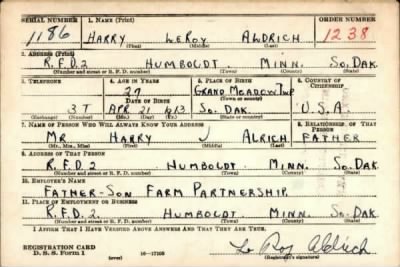 SERIAL NUMBER 1. NAME (Print) ORDER NUMBER
1186 HARRY LEROY ALDRICH 1238
(First) (Middle) (Last)
2. ADDRESS (Print)
R.F.D. 2 HUMBOLDT MINN. SO. DAK.
(Number and street or R. F. D. number) (Town) (County) (State)
3. TELEPHONE 4. AGE IN YEARS 5. PLACE OF BIRTH 6. COUNTRY OF CITIZENSHIP
27 GRAND MEADOW TWP
DATE OF BIRTH (Town or county)
3T APR 21 1913 SO. DAK. U.S.A.
(Exchange) (Number) (Mo.) (Day) (Yr.) (State or country)
7. NAME OF PERSON WHO WILL ALWAYS KNOW YOUR ADDRESS 8. RELATIONSHIP OF THAT PERSON
MR HARRY J ALRICH FATHER
(Mr., Mrs., Miss) (First) (Middle) (Last)
9. ADDRESS OF THAT PERSON
R.F.D. 2 HUMBOLDT MINN. SO. DAK.
(Number and street or R. F. D. number) (Town) (County) (State)
10. EMPLOYER'S NAME
FATHER-SON FARM PARTNERSHIP
11. PLACE OF EMPLOYMENT OR BUSINESS
R.F.D. 2 HUMBOLDT MINN. SO. DAK.
(Number and street or R. F. D. number) (Town) (County) (State)
I AFFIRM THAT I HAVE VERIFIED ABOVE ANSWERS AND THAT THEY ARE TRUE.
REGISTRATION CARD Le Roy Aldrich
D. S. S. Form 1 (over) 16-17105 (Registrant's signature)